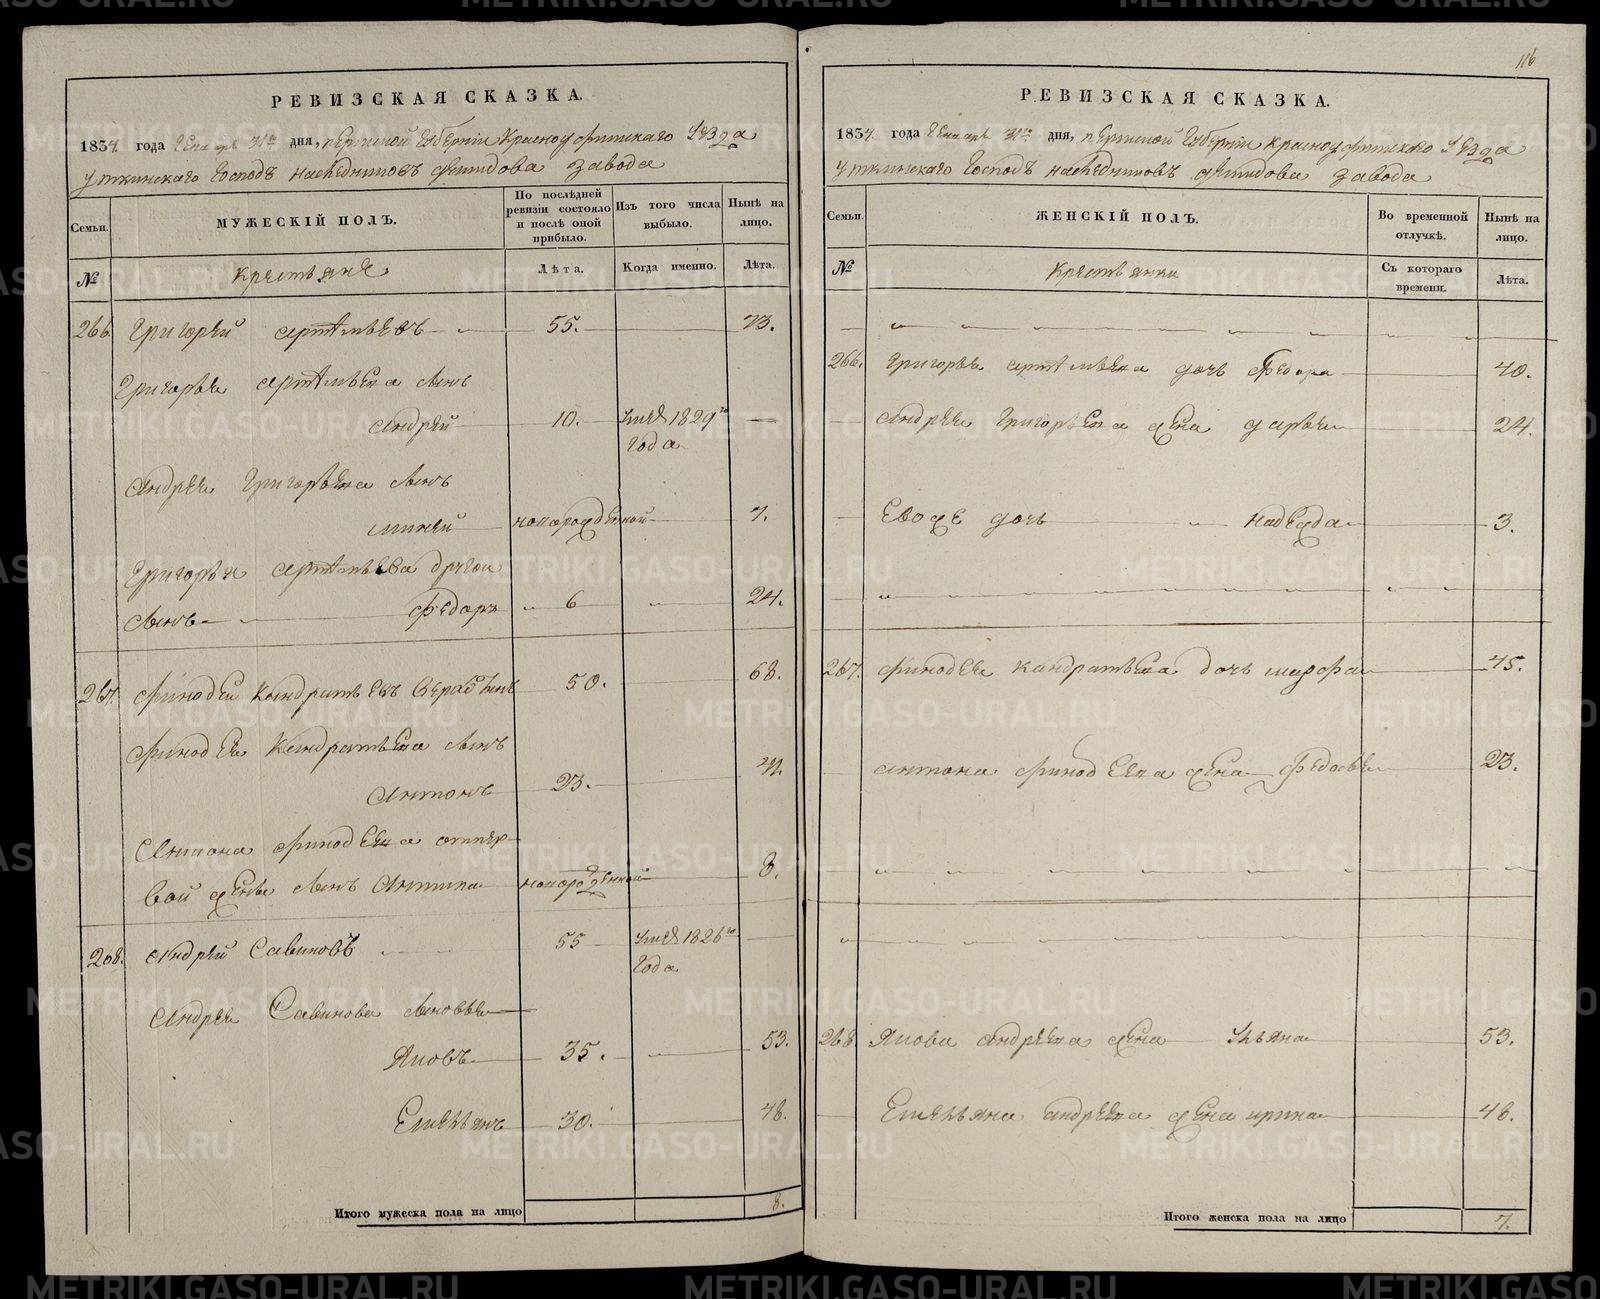 116
РЕВИЗСКАЯ СКАЗКА.
1834 года Генваря 31го дня, пермской губерніи Красноуфимскаго уезда
уткинскаго господъ наследниковъ демидова завода
Семьи.
МУЖЕСКІЙ ПОЛЪ.
По послѣдней ревизіи состояло и послѣ оной прибыло.
Изъ того числа выбыло.
Нынѣ на лицо.
№
крестьяне
Лѣта.
Когда именно.
Лѣта.
266. григорей артемьевъ 55. 73.
григорья артемьева сынъ
андрей 10. умеръ 1829го года
андрея григорьева сынъ
миней новорожденной 7.
григорья артемьева другой
сынъ федоръ 6 24.
267. финодей кондратьевъ 50. 68.
финодея кондратьева сынъ
антонъ 23. 41.
антона финодеева отпер-
вой жены сынъ антипа новорожденной 8.
268. андрей савиновъ 55 умеръ 1826го года
андрея савинова сыновья
яковъ 35. 53.
емельянъ 30. 48.
Итого мужеска пола на лицо 8.
РЕВИЗСКАЯ СКАЗКА.
1834 года Генваря 31го дня, пермской губерніи красноуфимскаго уезда
уткинскаго господъ наследниковъ демидова завода
Семьи.
ЖЕНСКІЙ ПОЛЪ.
Во временной отлучкѣ.
Нынѣ на лицо.
№
крестьянки
Съ котораго времени.
Лѣта.
266. григорья артемьева дочь федора 40.
андрея григорьева жена дарья 24.
Евоже дочь надежда 3.
267. финодея кондратьева дочь марфа 45.
антона финодеева жена федосья 23.
268. якова андреева жена ульяна 53.
Емельяна андреева жена ирина 48.
Итого женска пола на лицо 7.
METRIKI.GASO-URAL.RU